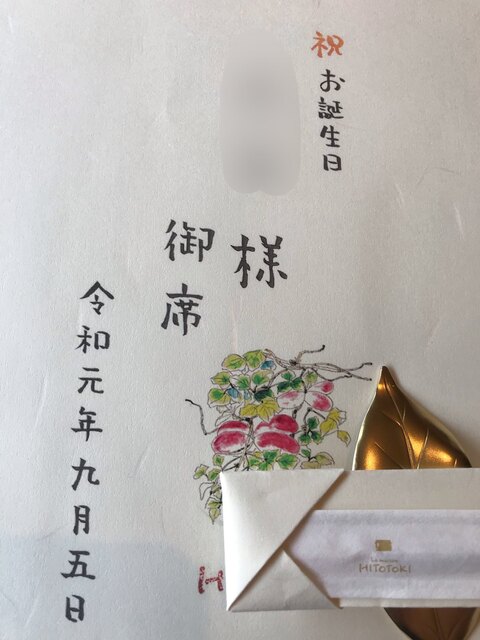 祝お誕生日
様
御席
令和元年九月五日
HITOTOKI